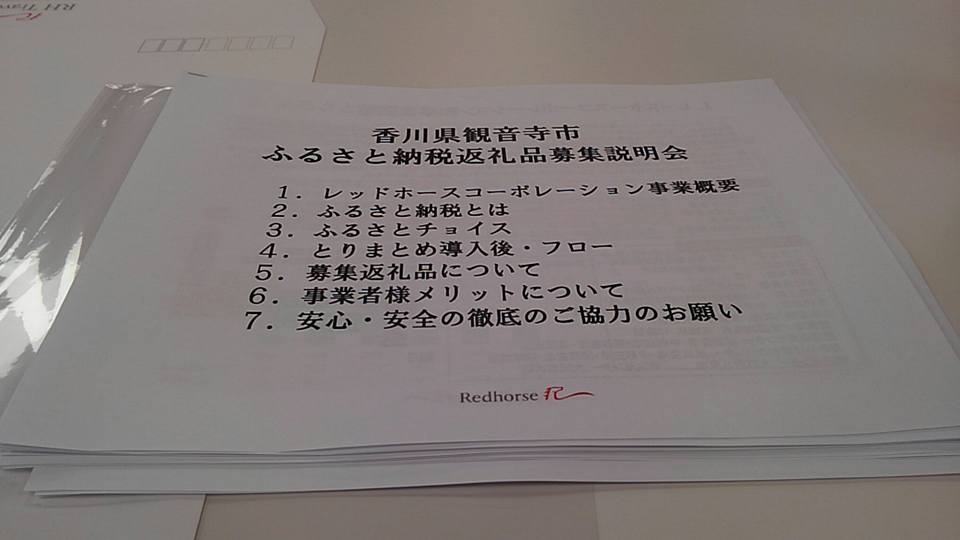 香川県観音寺市
ふるさと納税返礼品募集説明会
1．レッドホースコーポレーション事業概要
2．ふるさと納税とは
3．ふるさとチョイス
4．とりまとめ導入後・フロー
5．募集返礼品について
6．事業者様メリットについて
7．安心・安全の徹底のご協力のお願い
Redhorse